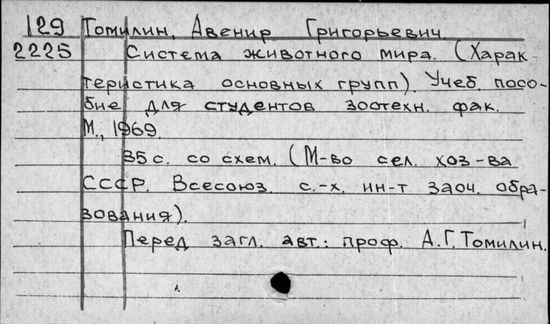 129 Томилин, Авенир Григорьевич
2225 Система животного мира. (Харак-
теристика основных групп). Учеб. посо-
бие для студентов зоотехн. фак.
М., 1969.
35 с. со схем. (М-во сел. хоз-ва
СССР. Всесоюз. с.-х. ин-т заоч. обра-
зования).
Перед загл. авт.: проф. А.Г. Томилин.